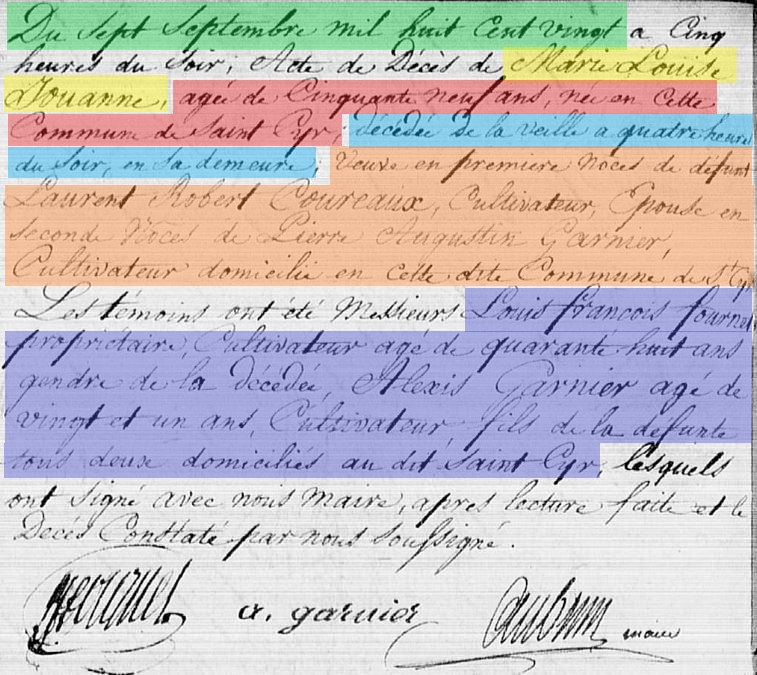 Du Sept Septembre mil huit Cent vingt a Cinq
heures du Soir, Acte de Décès de Marie Louise
Jouanne, agée de Cinquante neuf ans, née en Cette
Commune de Saint Cyr, décédée De la veille a quatre heure
du Soir, en Sa demeure, Veuve en premiere noces de défunt
Laurent Robert Coureaux, Cultivateur, Epouse en
seconde Noces de Pierre Augustin Garnier,
Cultivateur domicilié en Cette dite Commune de St Cyr
Les témoins ont été Messieurs Louis francois fournet
propriétaire, Cultivateur agé de quarante huit ans
gendre de la décédée, Alexis Garnier agé de
vingt et un ans, Cultivateur fils de la defunte
tous deux domiciliés au dit Saint Cyr, lesquels
ont Signé avec nous Maire, apres lecture faite et le
Decès Constaté par nous Soussigné.
a. garnier
maire